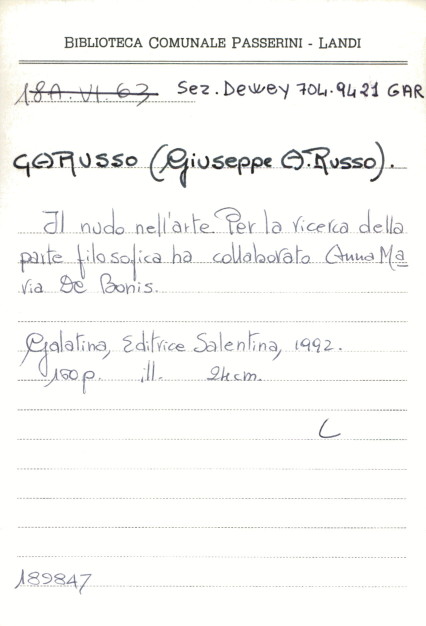 BIBLIOTECA COMUNALE PASSERINI - LANDI
18A.VI.63 Sez. Dewey 704.9421 GAR
GARUSSO (Giuseppe A. Russo).
Il nudo nell'arte. Per la ricerca della
parte filosofica ha collaborato Anna Ma
ria De Bonis.
Galatina, Editrice Salentina, 1992.
160 p. ill. 24 cm.
C
189847